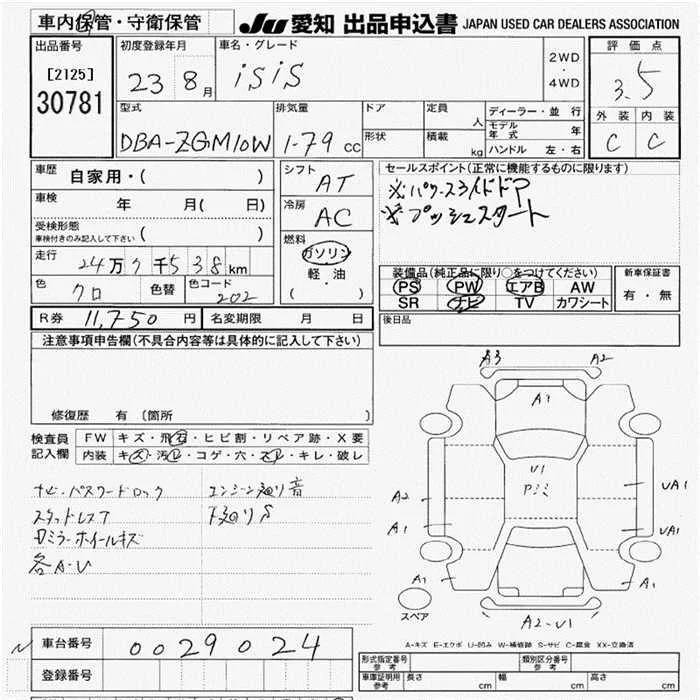 車内保管・守衛保管
JU 愛知 出品申込書 JAPAN USED CAR DEALERS ASSOCIATION
出品番号
[2125]
30781
初度登録年月
23 8月
車名・グレード
isis
2WD
・
4WD
評価点
3.5
外装 内装
C C
型式
DBA-ZGM10W
排気量
1.79 cc
ドア
形状
定員 人
積載 kg
ディーラー・並行
モデル年式 年
ハンドル 左・右
車歴
自家用・( )
車検 年 月( 日)
受検形態
車検付きのみ記入して下さい ( )
走行
24万7千538km
色
クロ
色替
色コード
202
シフト
AT
冷房
AC
燃料
ガソリン
軽・油
( )
セールスポイント(正常に機能するものに限ります)
※パワースライドドア
※プッシュスタート
装備品(純正品に限り○をつけてください)
PS PW エアB AW
SR ナビ TV カワシート
新車保証書
有・無
R券 11,750 円 名変期限 月 日
後日品
注意事項申告欄(不具合内容等は具体的に記入して下さい)
修復歴 有 (箇所 )
検査員記入欄
FW キズ・飛石・ヒビ割・リペア跡・X要
内装 キズ・汚レ・コゲ・穴・スレ・キレ・破レ
ナビ・パスワードロック
エンジン廻り音
スタッドレスT
下廻りS
Dミラーホイールキズ
各A・U
A3 A2
A1
U1
アンミ
A2 UA1
A1 UA1
A1 A1
スペア
A2-U1
A-キズ E-エクボ U-凹み W-補修跡 S-サビ C-腐食 XX-交換済
車台番号 0029024
登録番号
形式指定番号 参考
類別区分番号 参考
車庫証明用 参考 長さ cm 幅 cm 高さ cm